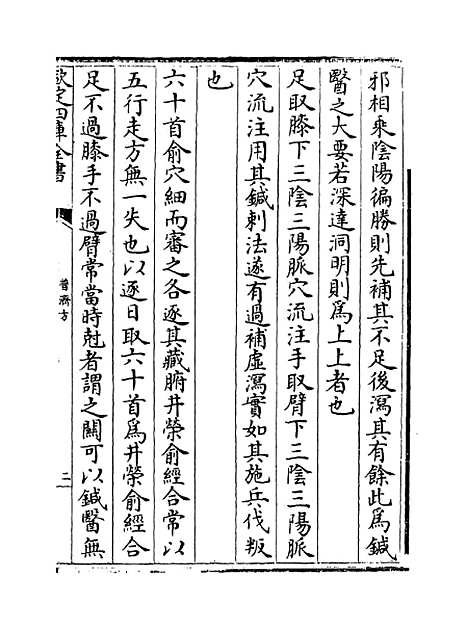 邪相乘陰陽徧勝則先補其不足後瀉其有餘此為鍼
醫之大要若深達洞明則為上上者也
足取膝下三陰三陽脈穴流注手取臂下三陰三陽脈
穴流注用其鍼刺法遂有過補虛瀉實如其施兵伐叛
也
六十首俞穴細而審之各逐其藏腑井榮俞經合常以
五行走方無一失也以逐日取六十首為井榮俞經合
足不過膝手不過臂常當時尅者謂之闗可以鍼醫無
欽定四庫全書
普濟方
二